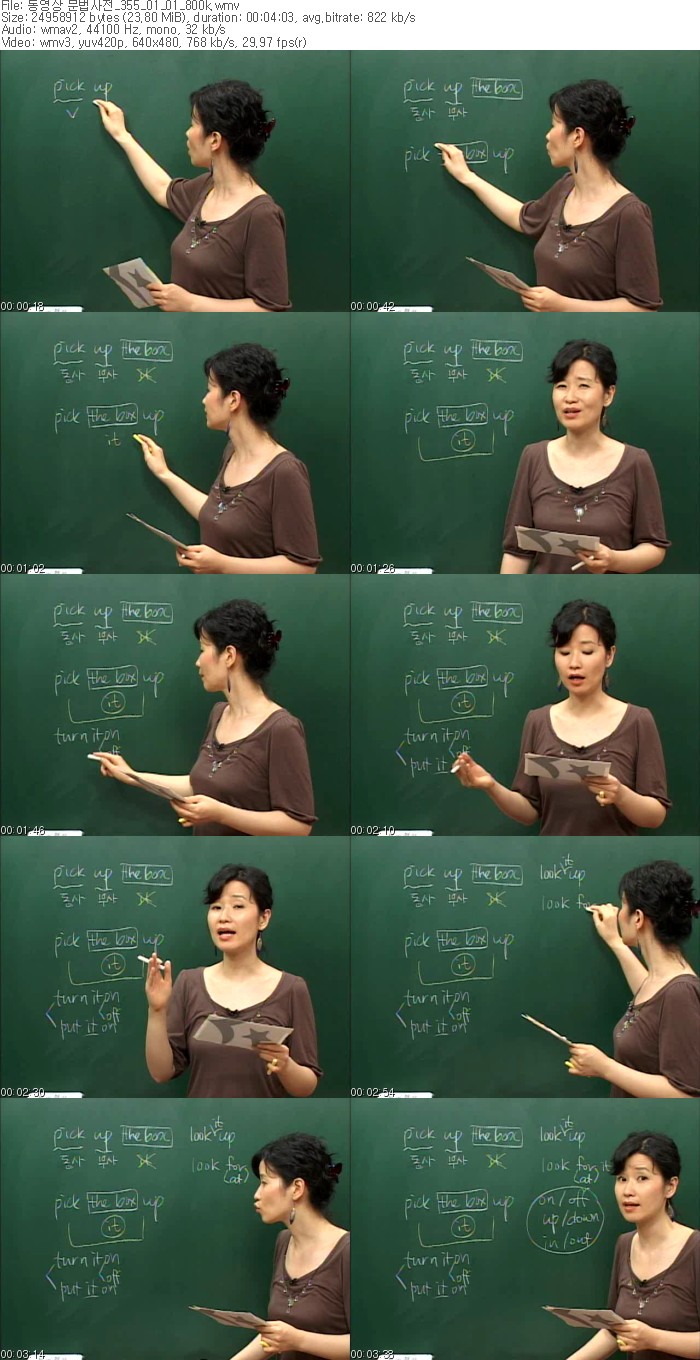 File: 동영상 문법사전_355_01_01_800k.wmv
Size: 24958912 bytes (23,80 MiB), duration: 00:04:03, avg.bitrate: 822 kb/s
Audio: wmav2, 44100 Hz, mono, 32 kb/s
Video: wmv3, yuv420p, 640x480, 768 kb/s, 29,97 fps(r)
pick up
V
00:00:18
pick up the box
동사 부사
pick box up
00:00:42
pick up the box
동사 부사 it
pick the box up
it
00:01:02
pick up the box
동사 부사 it
pick the box up
it
00:01:26
pick up the box
동사 부사 it
pick the box up
it
turn it on
off
00:01:46
pick up the box
동사 부사 it
pick the box up
it
turn it on
off
put it
00:02:10
pick up the box
동사 부사 it
pick the box up
it
turn it on
off
put it on
00:02:30
pick up the box
동사 부사 it
it
look up
look for
pick the box up
it
turn it on
off
put it on
00:02:54
pick up the box
동사 부사 it
it
look up
look for
(at)
pick the box up
it
turn it on
off
put it on
00:03:14
pick up the box
동사 부사 it
it
look up
look for it
(at)
pick the box up
it
on / off
up / down
in / out
turn it on
off
put it on
00:03:38